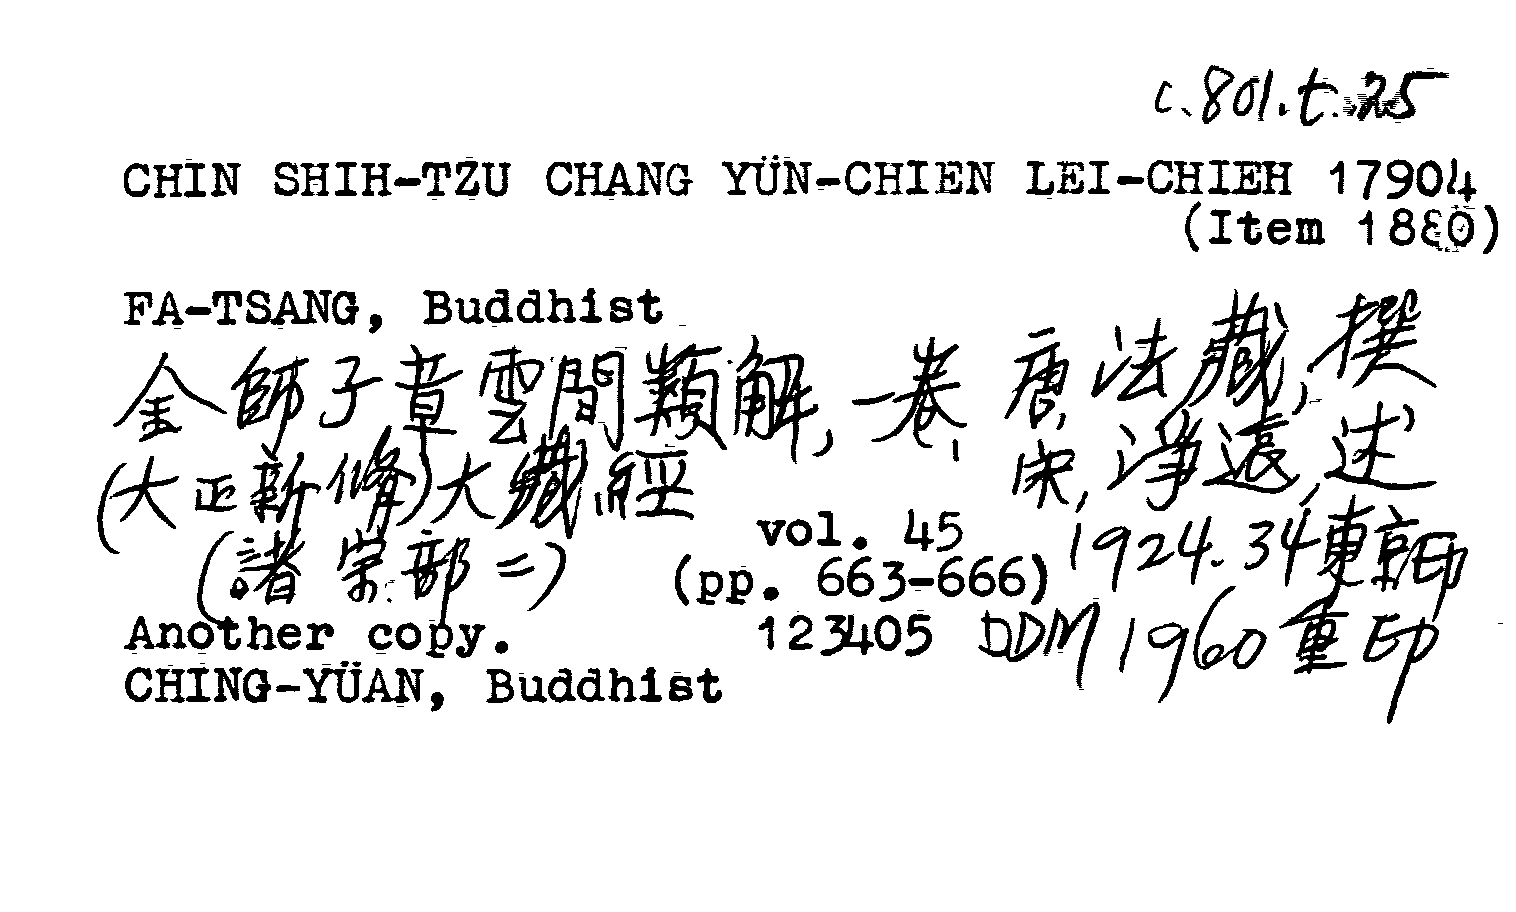 c.801.t.25
CHIN SHIH-TZU CHANG YÜN-CHIEN LEI-CHIEH 17904
(Item 1880)
FA-TSANG, Buddhist
金師子章雲間類解, 一卷, 唐, 法藏, 撰
宋, 淨源, 述
(大正新脩)大藏經
vol. 45 1924.34東京印
(諸宗部二) (pp. 663-666)
Another copy. 123405 DDM 1960重印
CHING-YÜAN, Buddhist